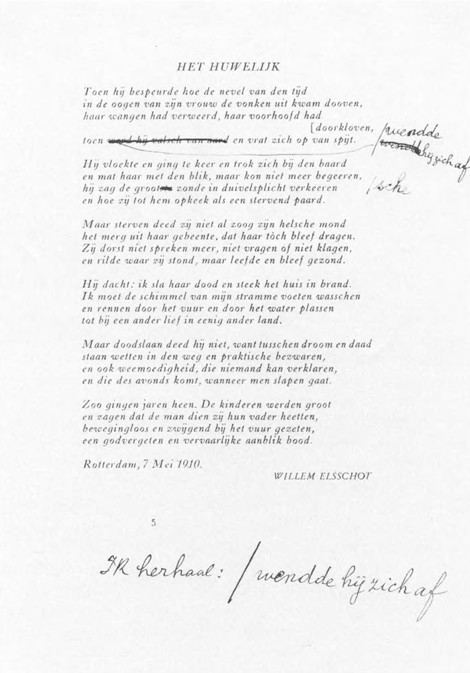 HET HUWELIJK
Toen hij bespeurde hoe de nevel van den tijd
in de oogen van zijn vrouw de vonken uit kwam dooven,
haar wangen had verweerd, haar voorhoofd had
[doorkloven,
toen werd hij valsch van aard en vrat zich op van spijt.
/wendde
hij zich af
Hij vloekte en ging te keer en trok zich bij den baard
en mat haar met den blik, maar kon niet meer begeeren,
hij zag de groote zonde in duivelsplicht verkeeren
/sche
en hoe zij tot hem opkeek als een stervend paard.
Maar sterven deed zij niet al zoog zijn helsche mond
het merg uit haar gebeente, dat haar tòch bleef dragen.
Zij dorst niet spreken meer, niet vragen of niet klagen,
en rilde waar zij stond, maar leefde en bleef gezond.
Hij dacht: ik sla haar dood en steek het huis in brand.
Ik moet de schimmel van mijn stramme voeten wasschen
en rennen door het vuur en door het water plassen
tot bij een ander lief in eenig ander land.
Maar doodslaan deed hij niet, want tusschen droom en daad
staan wetten in den weg en praktische bezwaren,
en ook weemoedigheid, die niemand kan verklaren,
en die des avonds komt, wanneer men slapen gaat.
Zoo gingen jaren heen. De kinderen werden groot
en zagen dat de man dien zij hun vader heetten,
bewegingloos en zwijgend bij het vuur gezeten,
een godvergeten en vervaarlijke aanblik bood.
Rotterdam, 7 Mei 1910.
WILLEM ELSSCHOT
5
Ik herhaal: /wendde hij zich af